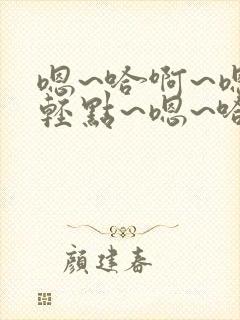 嗯~哈啊~嗯
輕點~嗯~哈
顏建春